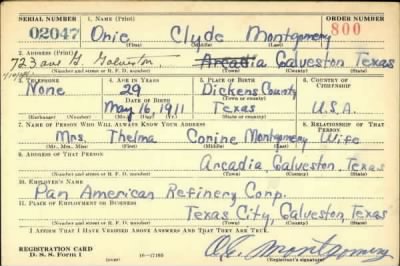 SERIAL NUMBER 1. NAME (Print) ORDER NUMBER
02047 Orie Clyde Montgomery 800
(First) (Middle) (Last)
2. ADDRESS (Print)
723 ave G. Galveston Arcadia Galveston Texas
(Number and street or R. F. D. number) (Town) (County) (State)
3. TELEPHONE 4. AGE IN YEARS 5. PLACE OF BIRTH 6. COUNTRY OF CITIZENSHIP
None 29 Dickens County
DATE OF BIRTH
May 16, 1911 Texas U.S.A.
(Exchange) (Number) (Mo.) (Day) (Yr.) (State or country)
7. NAME OF PERSON WHO WILL ALWAYS KNOW YOUR ADDRESS 8. RELATIONSHIP OF THAT PERSON
Mrs. Thelma Corine Montgomery Wife
(Mr., Mrs., Miss) (First) (Middle) (Last)
9. ADDRESS OF THAT PERSON
Arcadia, Galveston, Texas
(Number and street or R. F. D. number) (Town) (County) (State)
10. EMPLOYER'S NAME
Pan American Refinery Corp.
11. PLACE OF EMPLOYMENT OR BUSINESS
Texas City, Galveston, Texas
(Number and street or R. F. D. number) (Town) (County) (State)
I AFFIRM THAT I HAVE VERIFIED ABOVE ANSWERS AND THAT THEY ARE TRUE.
REGISTRATION CARD
D. S. S. Form 1 (over) 16—17105 O.C. Montgomery
(Registrant's signature)